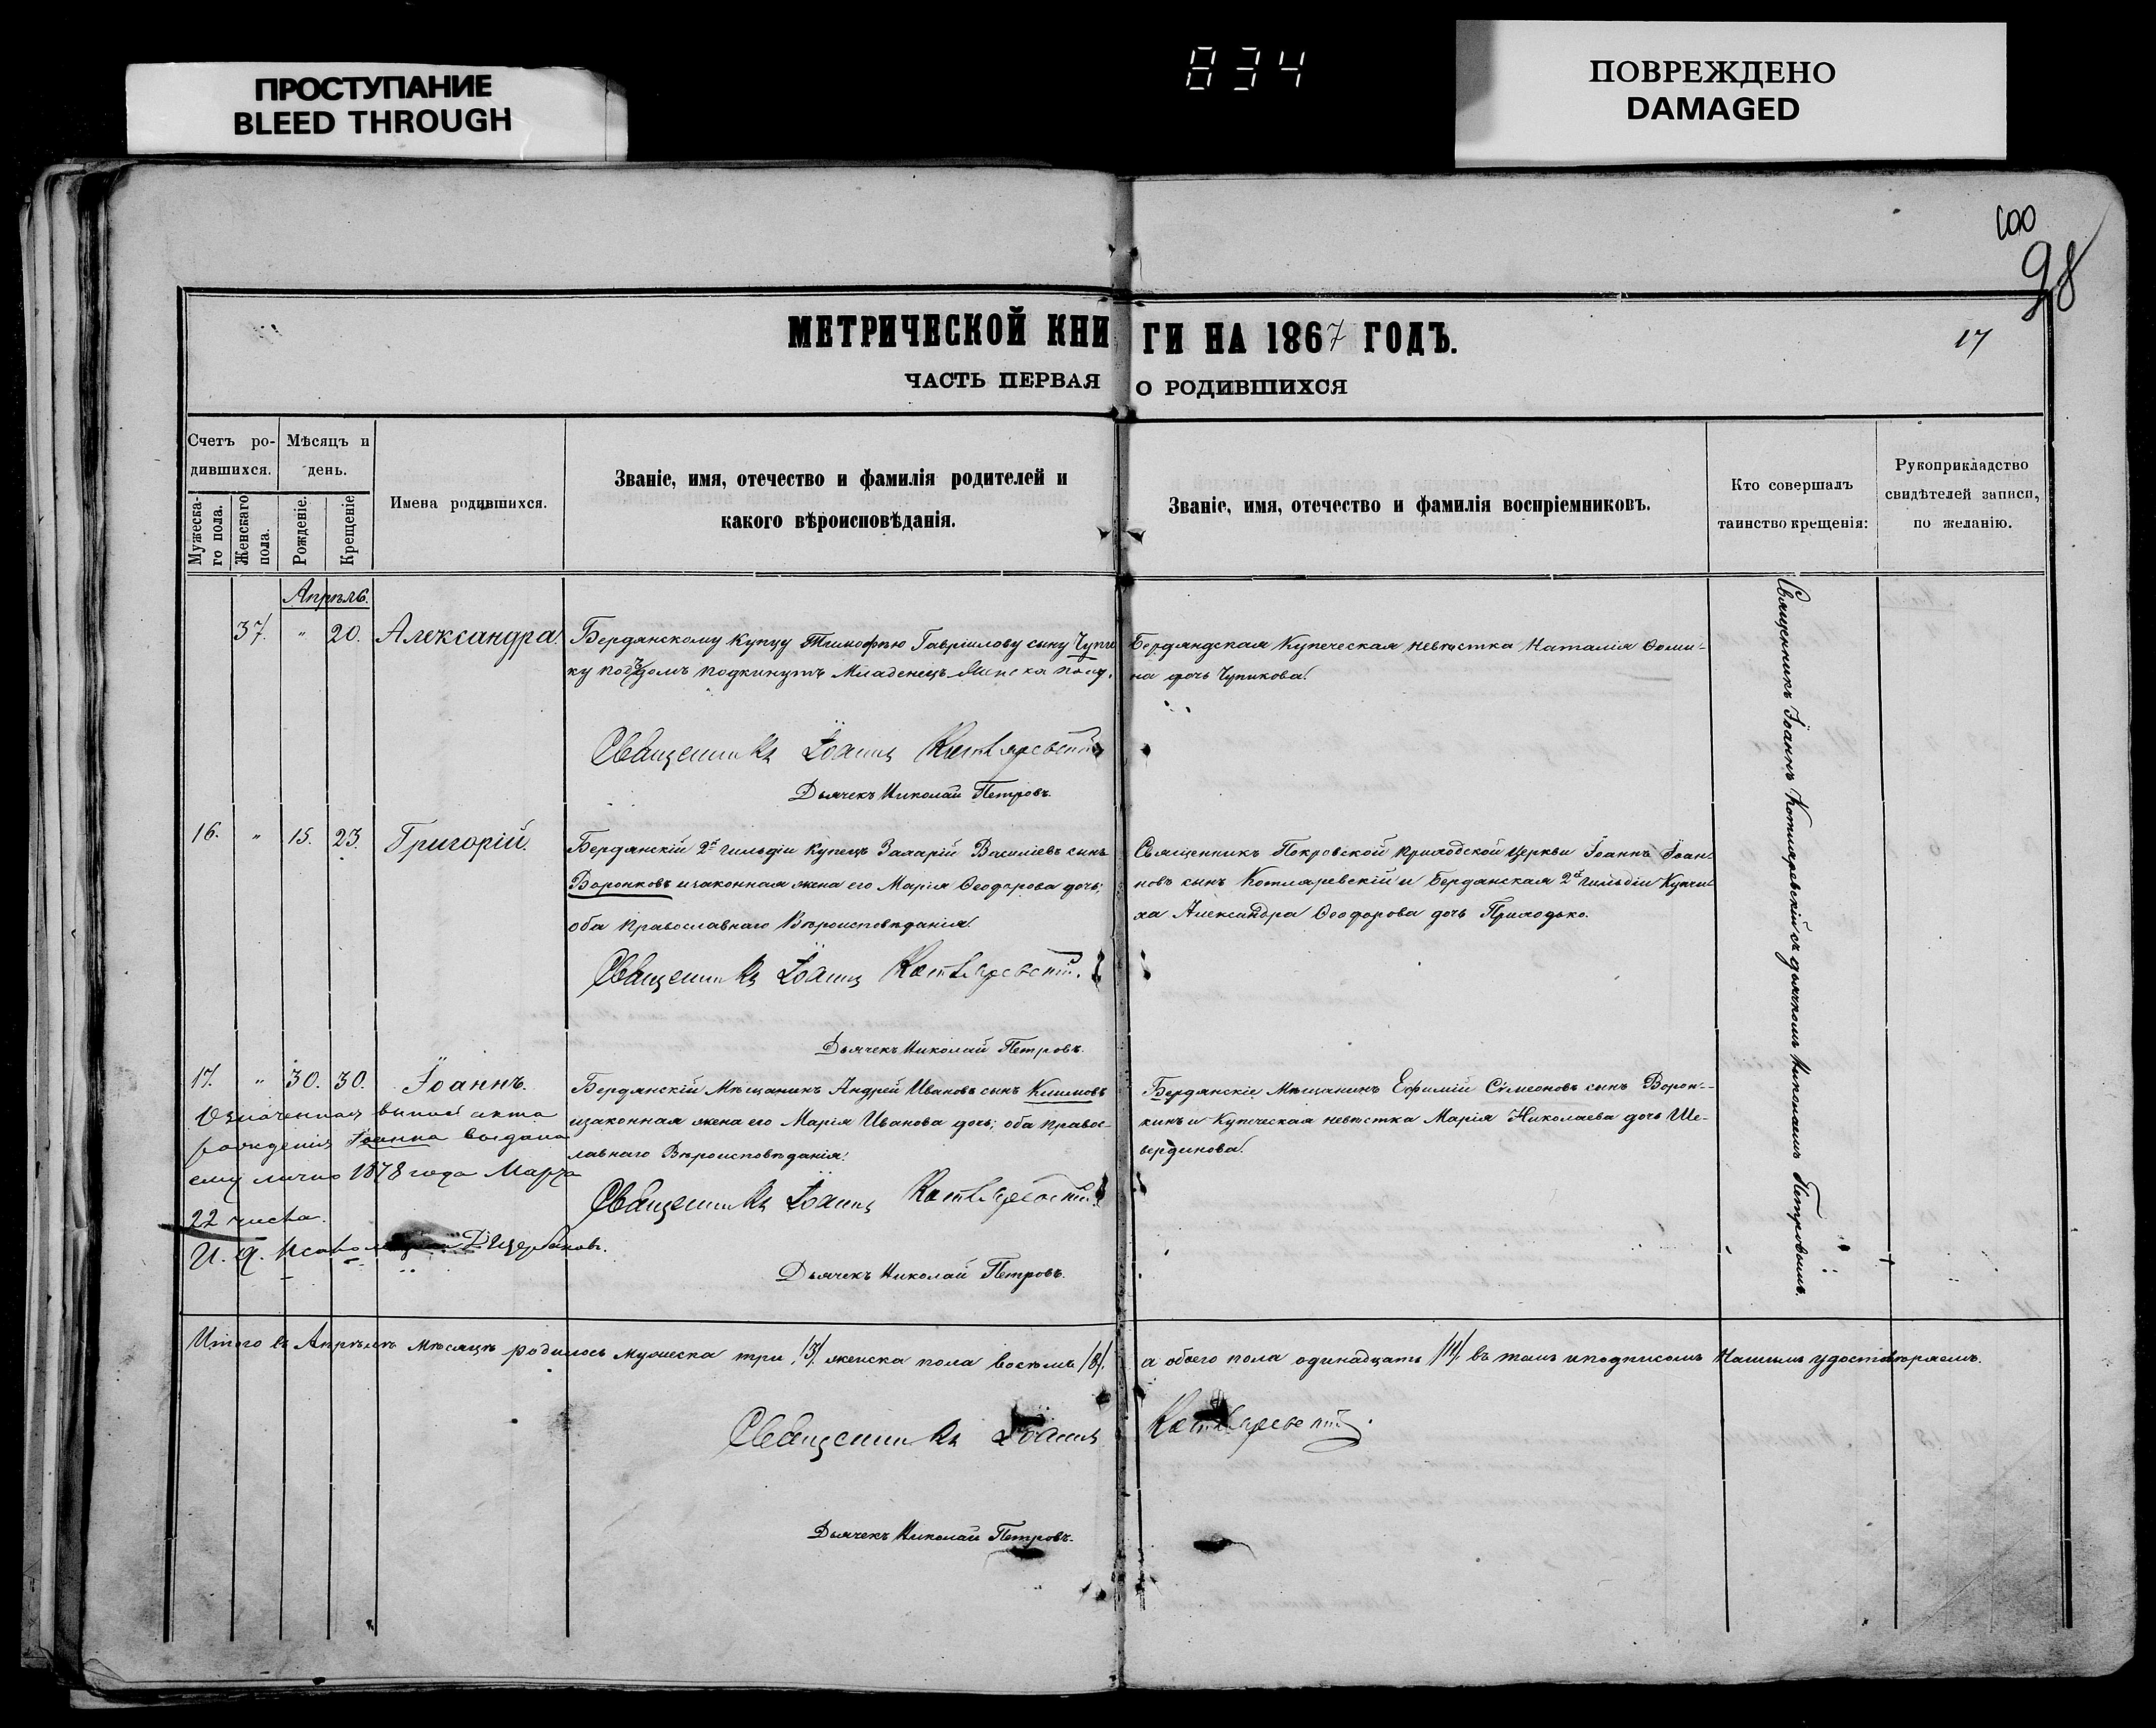 ПРОСТУПАНИЕ
BLEED THROUGH
834
ПОВРЕЖДЕНО
DAMAGED
100
98
МЕТРИЧЕСКОЙ КНИГИ НА 1867 ГОДЪ.
17
ЧАСТЬ ПЕРВАЯ О РОДИВШИХСЯ
Счетъ ро-
дившихся.
Мужеска-
го пола.
Женскаго
пола.
Мѣсяцъ и
день.
Рожденіе.
Крещеніе
Имена родившихся.
Званіе, имя, отечество и фамилія родителей и
какого вѣроисповѣданія.
Званіе, имя, отечество и фамилія воспріемниковъ.
Кто совершалъ
таинство крещенія:
Рукоприкладство
свидѣтелей записи,
по желанію.
Апрѣль.
37. " 20. Александра.
Бердянскому Купцу Тимофѣю Гавріилову сыну Чупи
ку подъ домъ подкинутъ Младенецъ
Бердянская Купеческая невѣстка Наталія Ѳоми-
на дочь Чупикова.
Священникъ Іоаннъ Котляревскій
Дьячекъ Николай Петровъ.
16. " 15. 23. Григорій.
Бердянскій 2й гильдіи купецъ Захарій Василіевъ сынъ
Воронковъ и законная жена его Марія Ѳеодорова дочь;
оба Православнаго Вѣроисповѣданія.
Священникъ Покровской приходской церкви Іоаннъ Іоан-
новъ сынъ Котляревскій и Бердянская 2й гильдіи Купчи-
ха Александра Ѳеодорова дочь Приходько.
Священникъ Іоаннъ Котляревскій.
Дьячекъ Николай Петровъ.
17. " 30. 30. Іоаннъ.
Бердянскій Мѣщанинъ Андрей Ивановъ сынъ Климовъ
и законная жена его Марія Иванова дочь; оба Правос-
лавнаго Вѣроисповѣданія.
Бердянскіе Мѣщанинъ Ефимій Симеоновъ сынъ Ворон-
кинъ и Купеческая невѣстка Марія Николаева дочь Ше-
вердинова.
Означенная выпись акта
рожденія Іоанна выдана
ему лично 1878 года Марта
22 числа.
И. д. Псаломщика Д. Щербаковъ.
Священникъ Іоаннъ Котляревскій
Дьячекъ Николай Петровъ.
Священникъ Іоаннъ Котляревскій съ дьячкомъ Николаемъ Петровымъ.
Итого въ Апрѣлѣ мѣсяцѣ родилось мужеска три /3/ женска пола восемь /8/. а обоего пола одинадцать /11/ въ томъ и подписомъ нашимъ удостовѣряемъ.
Священникъ Іоаннъ Котляревскій.
Дьячекъ Николай Петровъ.